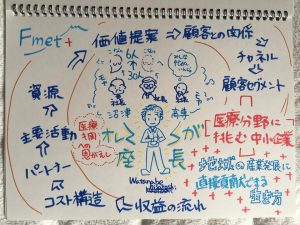 Fmet+
価値提案 ⇨ 顧客との関係
チャネル
顧客セグメント
6人
30人
沼津
資源
主要活動
パートナー
コスト構造
収益の流れ
医療
への
恩がえし
オレ
座長
Watanabe
医療分野に
挑む中小企業
地域の産業発展に
直接貢献できる
生き方